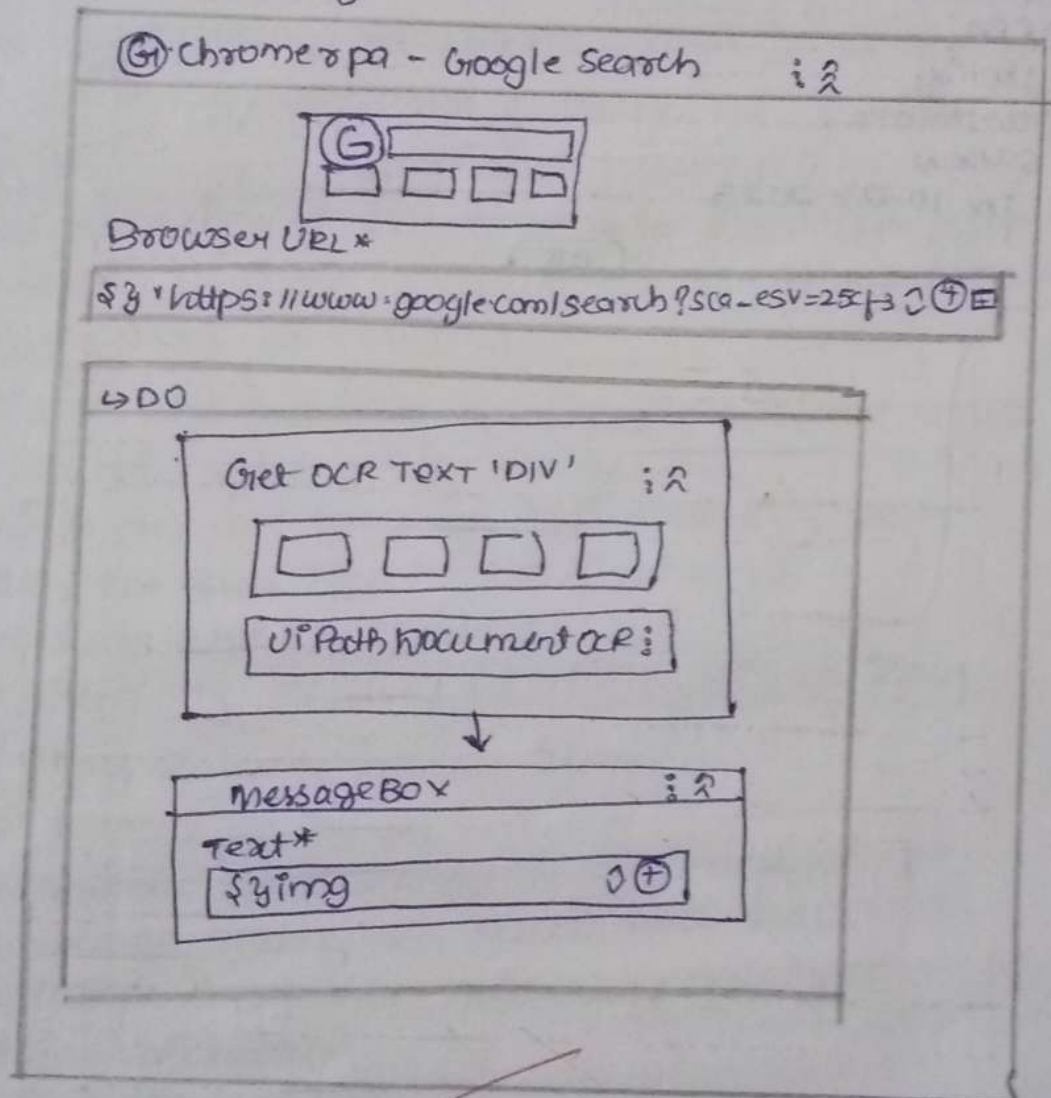 G Chrome rpa - Google Search
G
Browser URL *
{} "https://www.google.com/search?sca-esv=25cf3
↳ DO
Get OCR Text 'DIV'
UiPath Document OCR
MessageBox
Text*
{} img